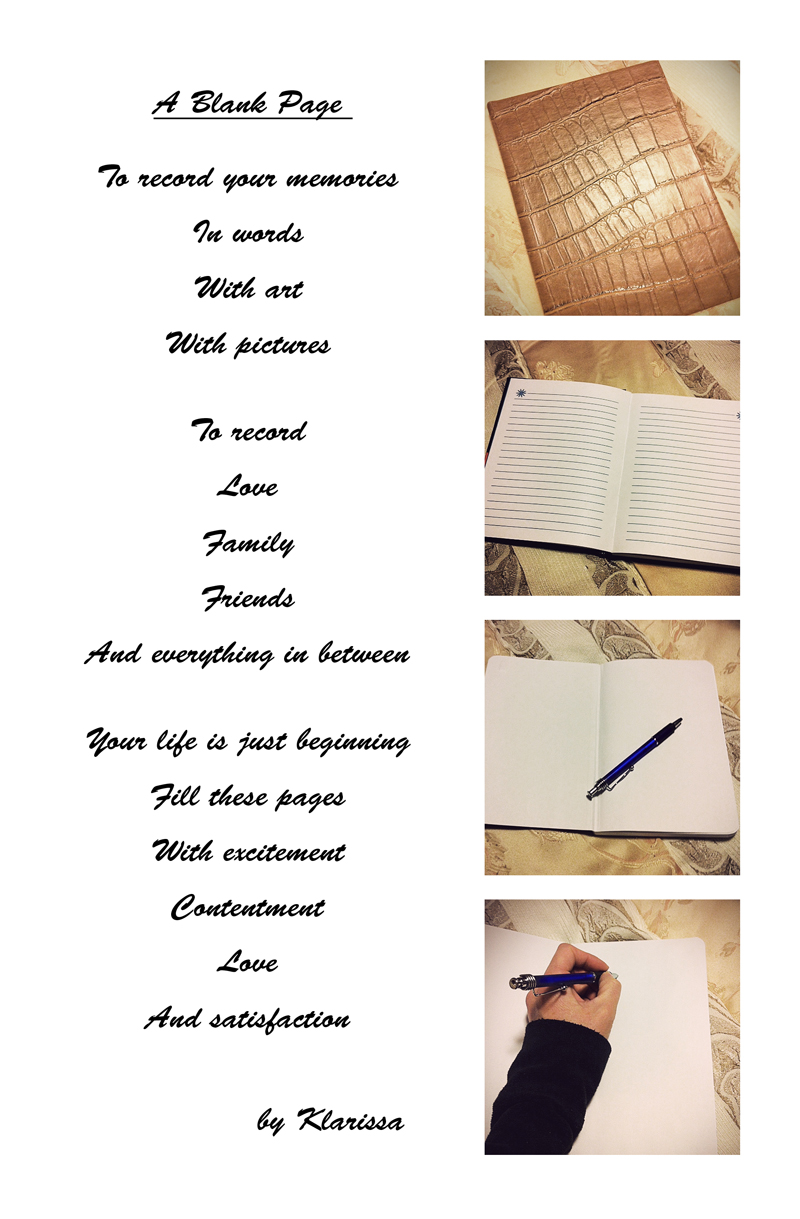 A Blank Page
To record your memories
In words
With art
With pictures
To record
Love
Family
Friends
And everything in between
Your life is just beginning
Fill these pages
With excitement
Contentment
Love
And satisfaction
by Klarissa